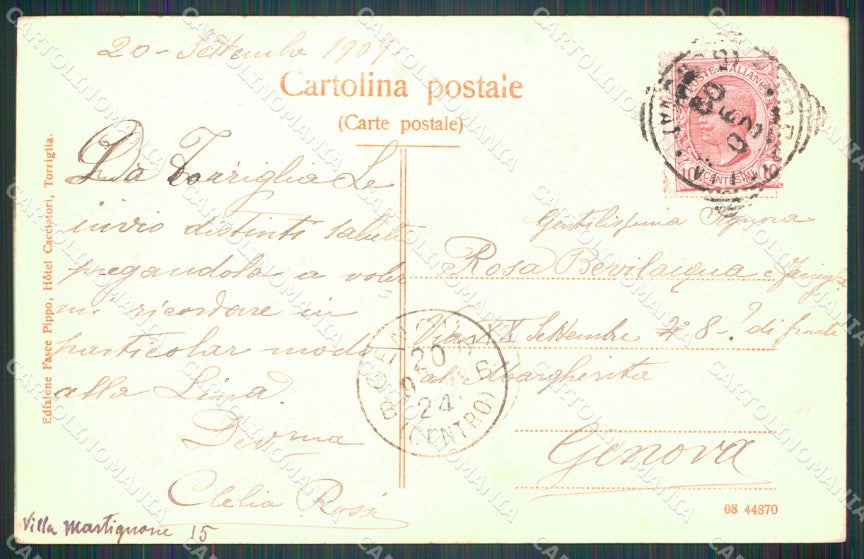 20 - Settembre 1909
Cartolina postale
(Carte postale)
Da Torriglia Le
invio distinti saluti
pregandola a voler
mi ricordare in
particolar modo
alla Lina.
Dev.ma
Clelia Rossi
Villa Martignone 15
Edizione Fasce Pippo, Hôtel Cacciatori, Torriglia.
POSTE ITALIANE
CENTESIMI 10
Gentilissima Signora
Rosa Bevilacqua e famiglia
Via XX Settembre N° 8 - ? di fronte
al Margherita
Genova
GENOVA
20
24
(CENTRO)
08 44870
CARTOLINOMANIA